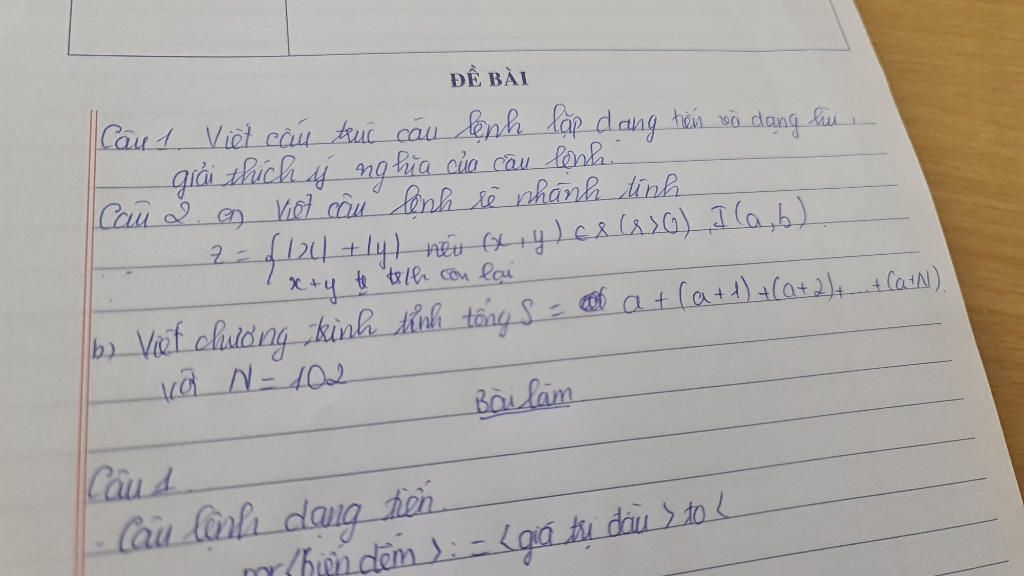 ĐỀ BÀI
Câu 1. Viết cấu trúc câu lệnh lặp dạng tiến và dạng lùi,
giải thích ý nghĩa của câu lệnh.
Câu 2. a) Viết câu lệnh rẽ nhánh tính
z = { |x| + |y| nếu (x, y) (r>0), I(a,b)
x+y còn lại
b) Viết chương trình tính tổng S = a + (a+1) + (a+2)+ ... + (a+N)
với N = 102
Bài làm
Câu 1
- Câu lệnh dạng tiến.
<biến đếm> := <giá trị đầu> to <